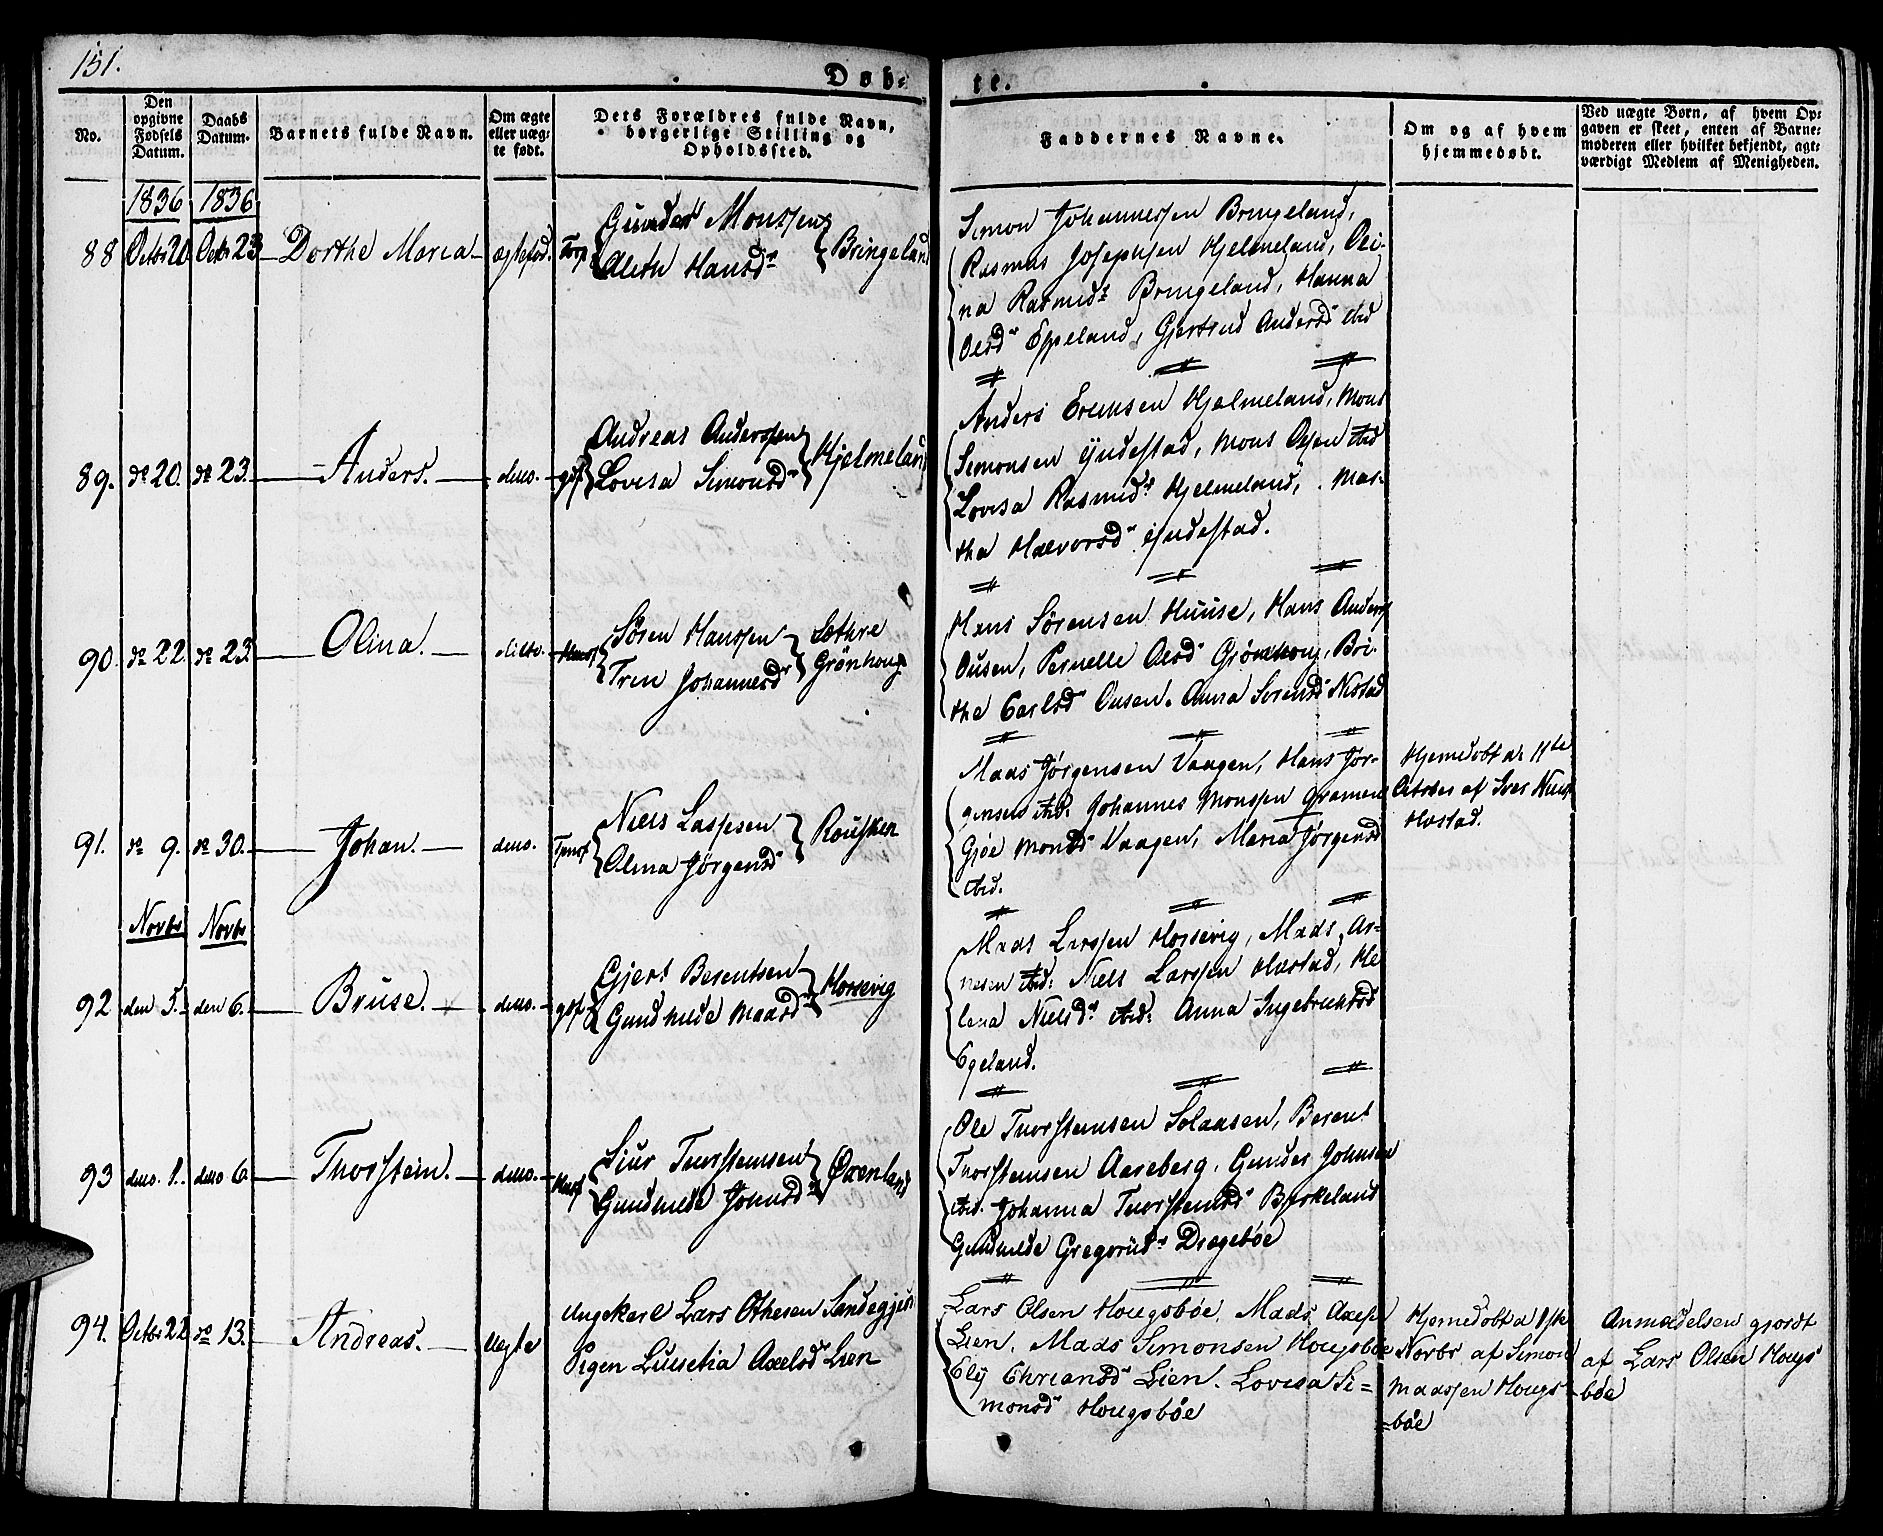 151.
Døb-
te.
No.
Den
opgivne
Fødsels
Datum.
Daabs
Datum.
Barnets fulde Navn.
Om ægte
eller uæg-
te født.
Dets Forældres fulde Navn,
borgerlige Stilling og
Opholdssted.
Faddernes Navne.
Om og af hvem
hjemmedøbt.
Ved uægte Børn, af hvem Op-
gaven er skeet, enten af Barne-
moderen eller hvilket bekjendt, agt-
værdigt Medlem af Menigheden.
1836 1836
88 Octbr 20 Octbr 23 Dorthe Maria ægtefød.
Gunder Monssen
Aleth Hansdr
Bringeland
Simon Johannessen Bringeland,
Rasmus Josephsen Hjelmeland, Oli-
na Rasmidr Bringeland, Hanna
Olsdr Espeland, Gjertrud Andersdr ibid
89. dn 20. dn 23. Anders. dito. gdf
Andreas Anderssen
Lovisa Simonsdr
Hjelmeland
Anders Hjelmeland, Mons
Simonsen Yndestad, Mons Olsen ibid
Lovisa Rasmidr Hjelmeland, Mar-
tha Halvorsdr Yndestad.
90. dn 22. dn 23. Olina. ditto. Husf
Søren Hanssen
Trin Johannesdr
Sæthre
Grönhoug
Hans Sørensen Huuse, Hans Anders
Ousen, Pernelle Olsdr Grønhoug, Bri-
the Carlsdr Ousen. Anna Sörensdr Nistad
91. dn 9. dn 30. Johan. dito.
Niels Lassesen
Olina Jørgensdr
Rousken
Maas Jørgensen Vaagen, Hans Jør-
gensen ibid. Johannes Monssen
Gjøe Monsdr Vaagen, Maria Jørgensdr
ibid.
Hjemedøbt dn 11te
Octobr af Iver
Hæstad.
Novbr Novbr
92 den 5. den 6. Bruse. dito. gdf
Gjert Berentsen
Gundhilde Maasdr
Horsevig
Mads Larssen Horsevig, Mads Ar-
nesen ibid: Niels Larssen Hæstad, He-
lena Nielsdr ibid: Anna Ingebrichtsdr
Egeland.
93 dito. 1. dito 6. Thorstein. dito. Husf
Siur Thorsteinsen
Gundhilde Jonsdr
Øxenland
Ole Thorsteinsen Solaasen, Berent
Thorsteinsen Aareberg, Gunder Johnsen
ibid. Johanna Thorsteinsdr Birkeland
Gundhilde Gregoriidr Dregebøe
94. Octbr 22 dn 13. Andreas. Uegte
Ungekarl Lars Othesen
Pigen Lucretia Axelsdr Lien
Lars Olsen Hougsbøe, Mads Axels
Lien, Mads Simonsen Hougsbøe
Ely Lien. Lovisa Si-
monsdr Hougsbøe
Hjemedøbt d
Novbr af Simon
Maassen Hougs-
bøe
Anmeldelsen gjordt
af Lars Olsen Hougs-
bøe